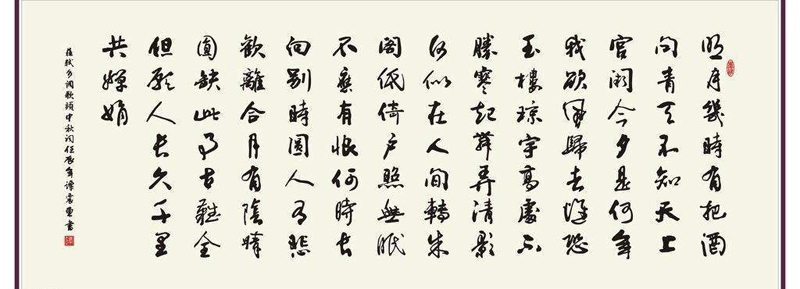 明月幾時有把酒
问青天不知天上
宫阙今夕是何年
我欲風歸去惟恐
玉樓琼宇高處不
勝寒起舞弄清影
何似在人间轉朱
阁低绮户照無眠
不應有恨何時长
向别時圆人有悲
歡離合月有陰晴
圆缺此事古難全
但愿人长久千里
共嬋娟
蘇軾水调歌頭中秋词